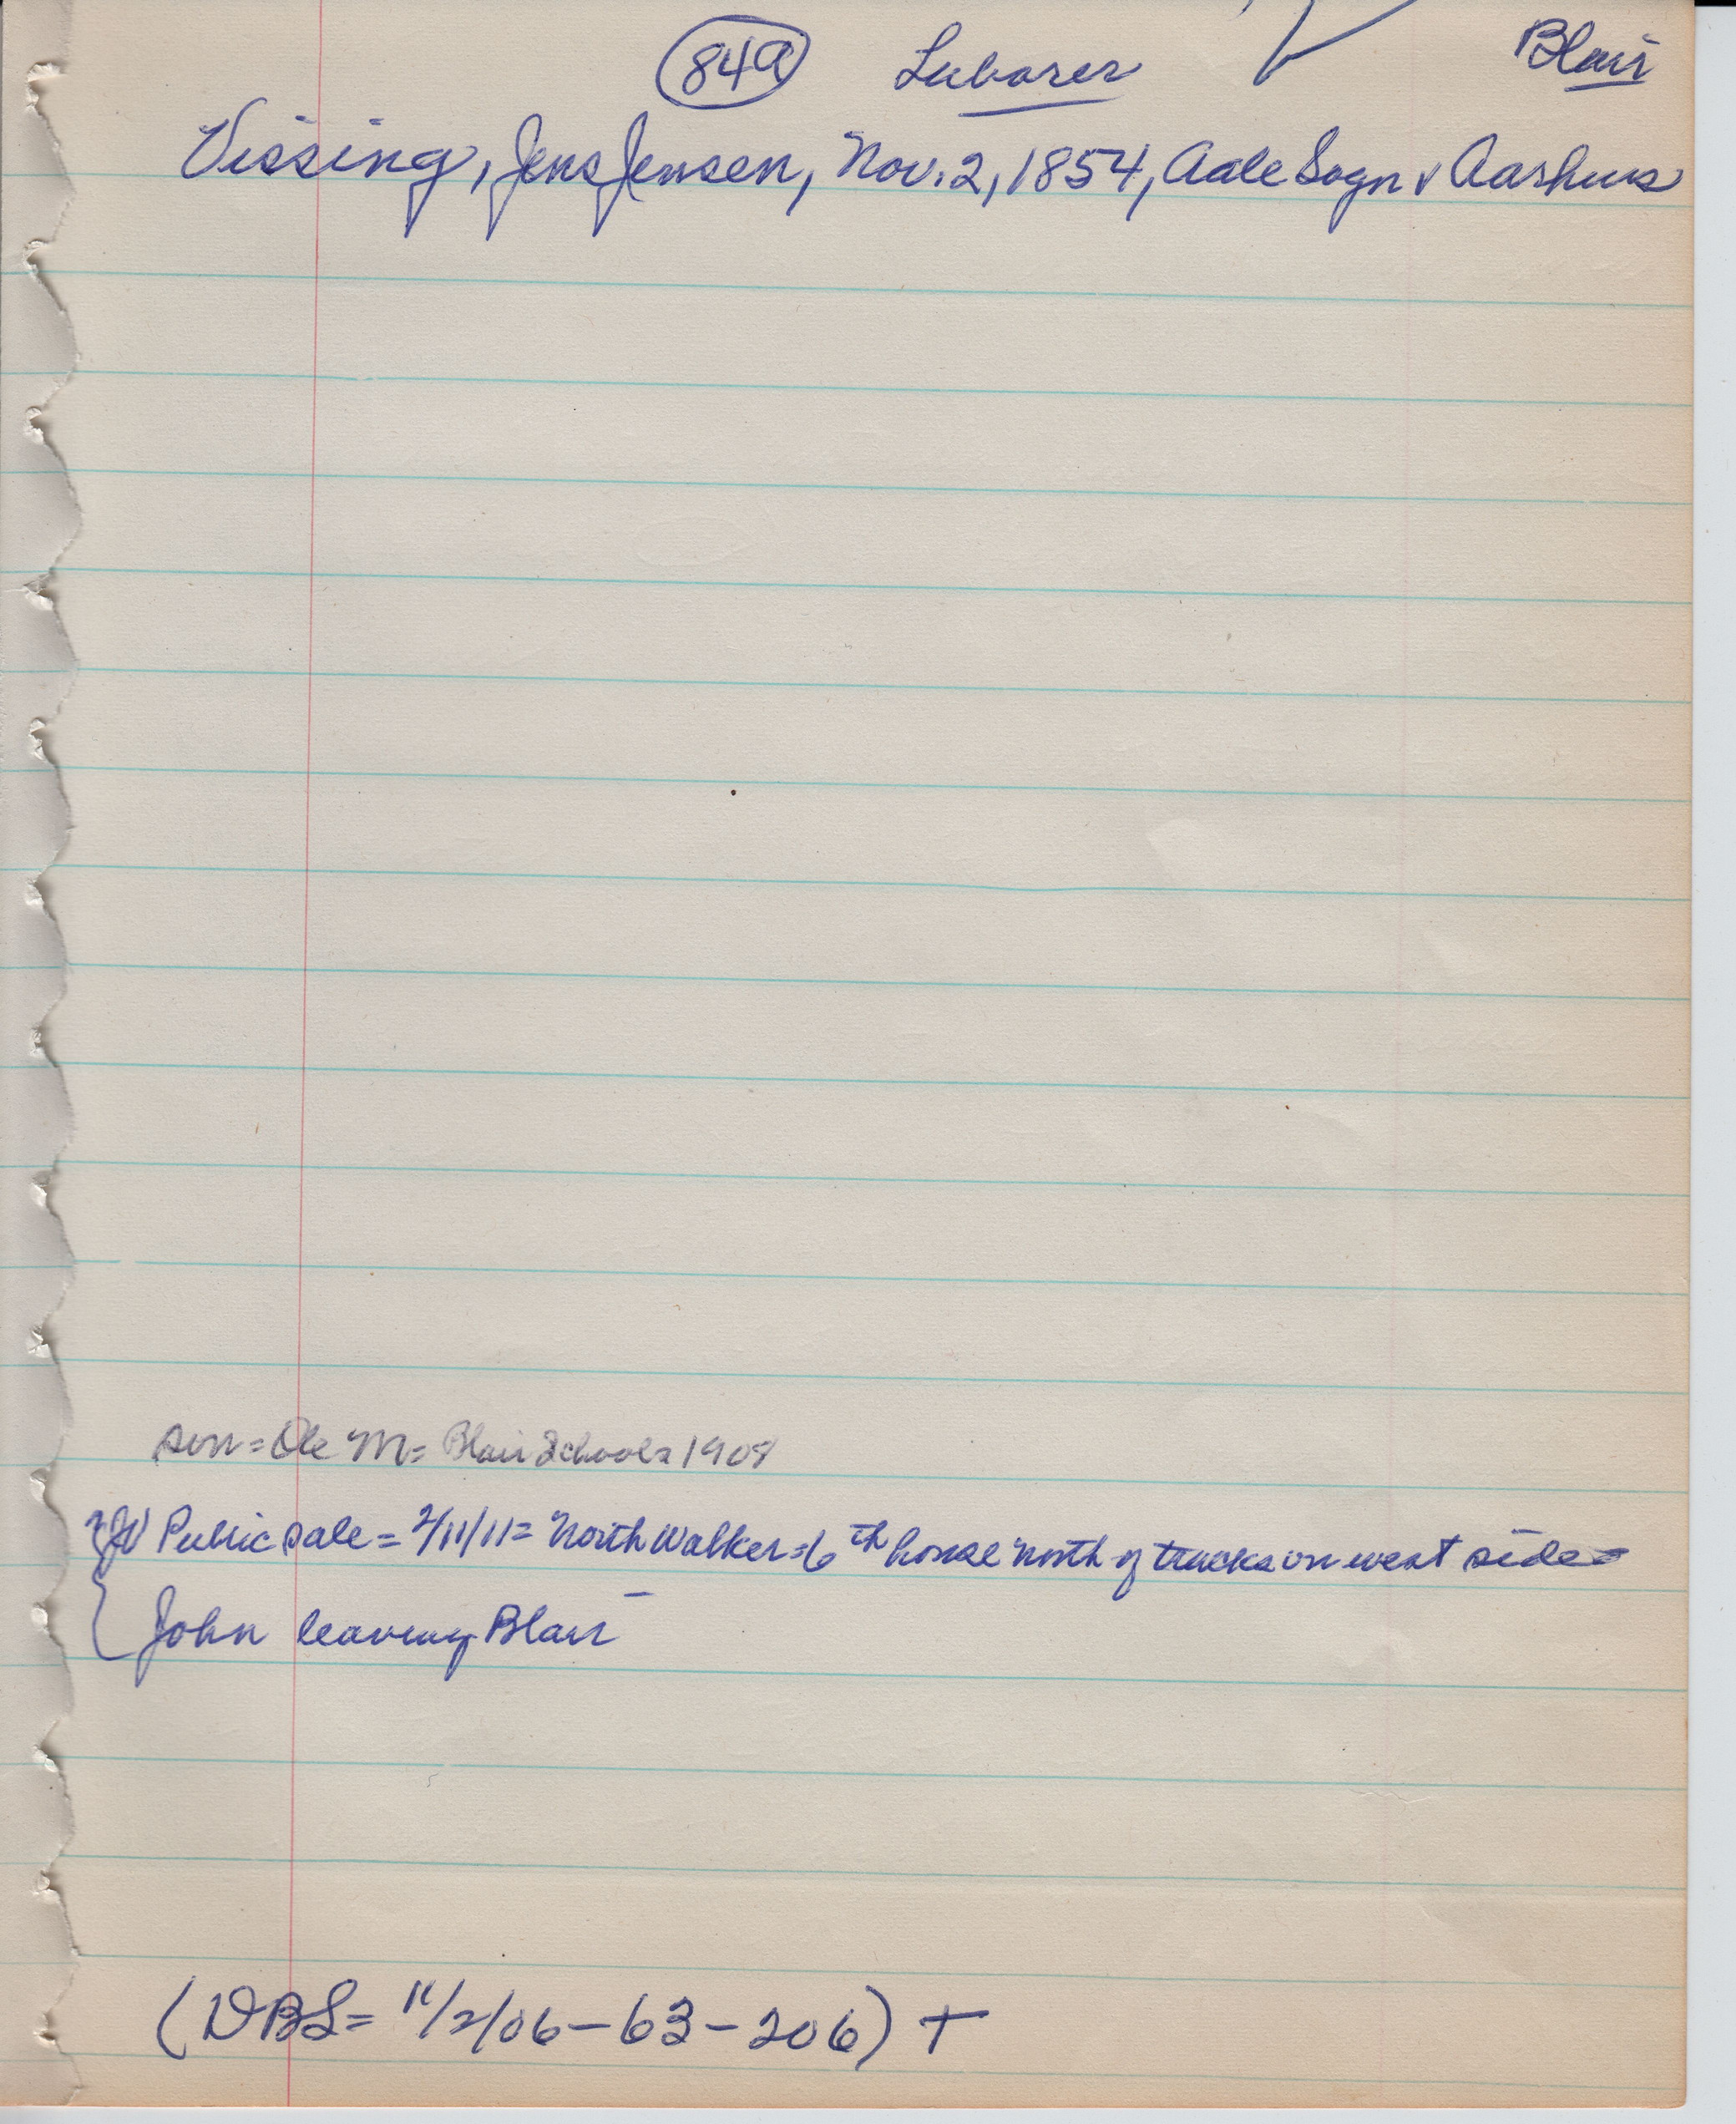 849 Laborer Blair
Vissing, Jens Jensen, Nov. 2, 1854, Aale Sogn v Aarhus
son = Ole M = Blair Schools 1908
Public Sale = 2/11/11 = North Walker = 6th house north of tracks on west side =
John leaving Blair
(DBL = 11/2/06 - 63 - 206) +